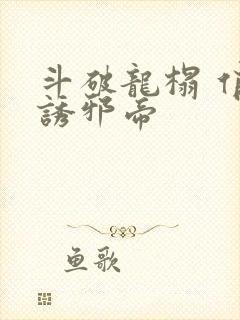 斗破龍榻 俏
誘邪帝
鱼歌